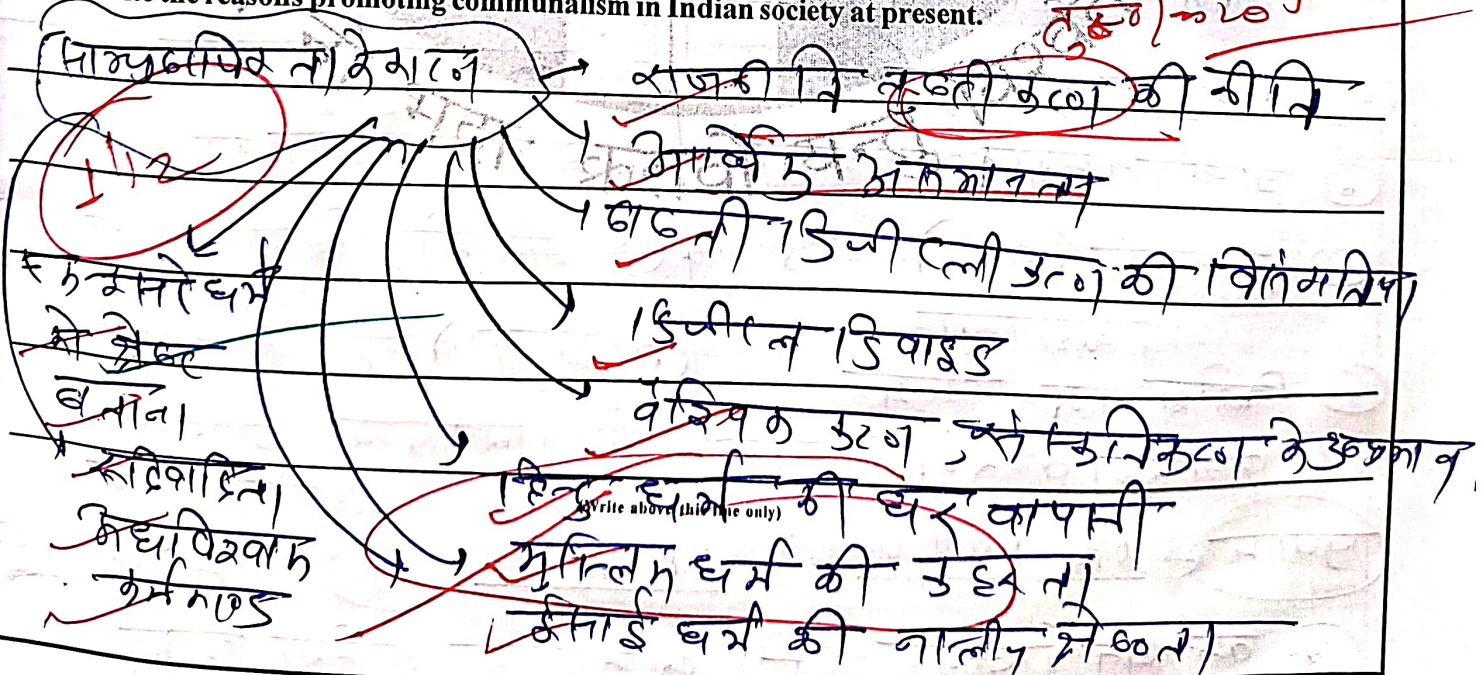 the reasons promoting communalism in Indian society at present.
साम्प्रदायिकता के कारण
1 1/2
राजनीति तुष्टीकरण की नीति
आर्थिक असमानता
बढती डिजीटलीकरण की
डिजीटल डिवाइड
वैश्विककरण,
हिन्दु धर्म की घर वापसी
(Write above this line only)
मुस्लिम धर्म की कट्टरता
ईसाई धर्म की श्रेष्ठता
धर्म
को श्रेष्ठ
बताना
रूढिवादिता
अंधविश्वास
कर्मकाण्ड